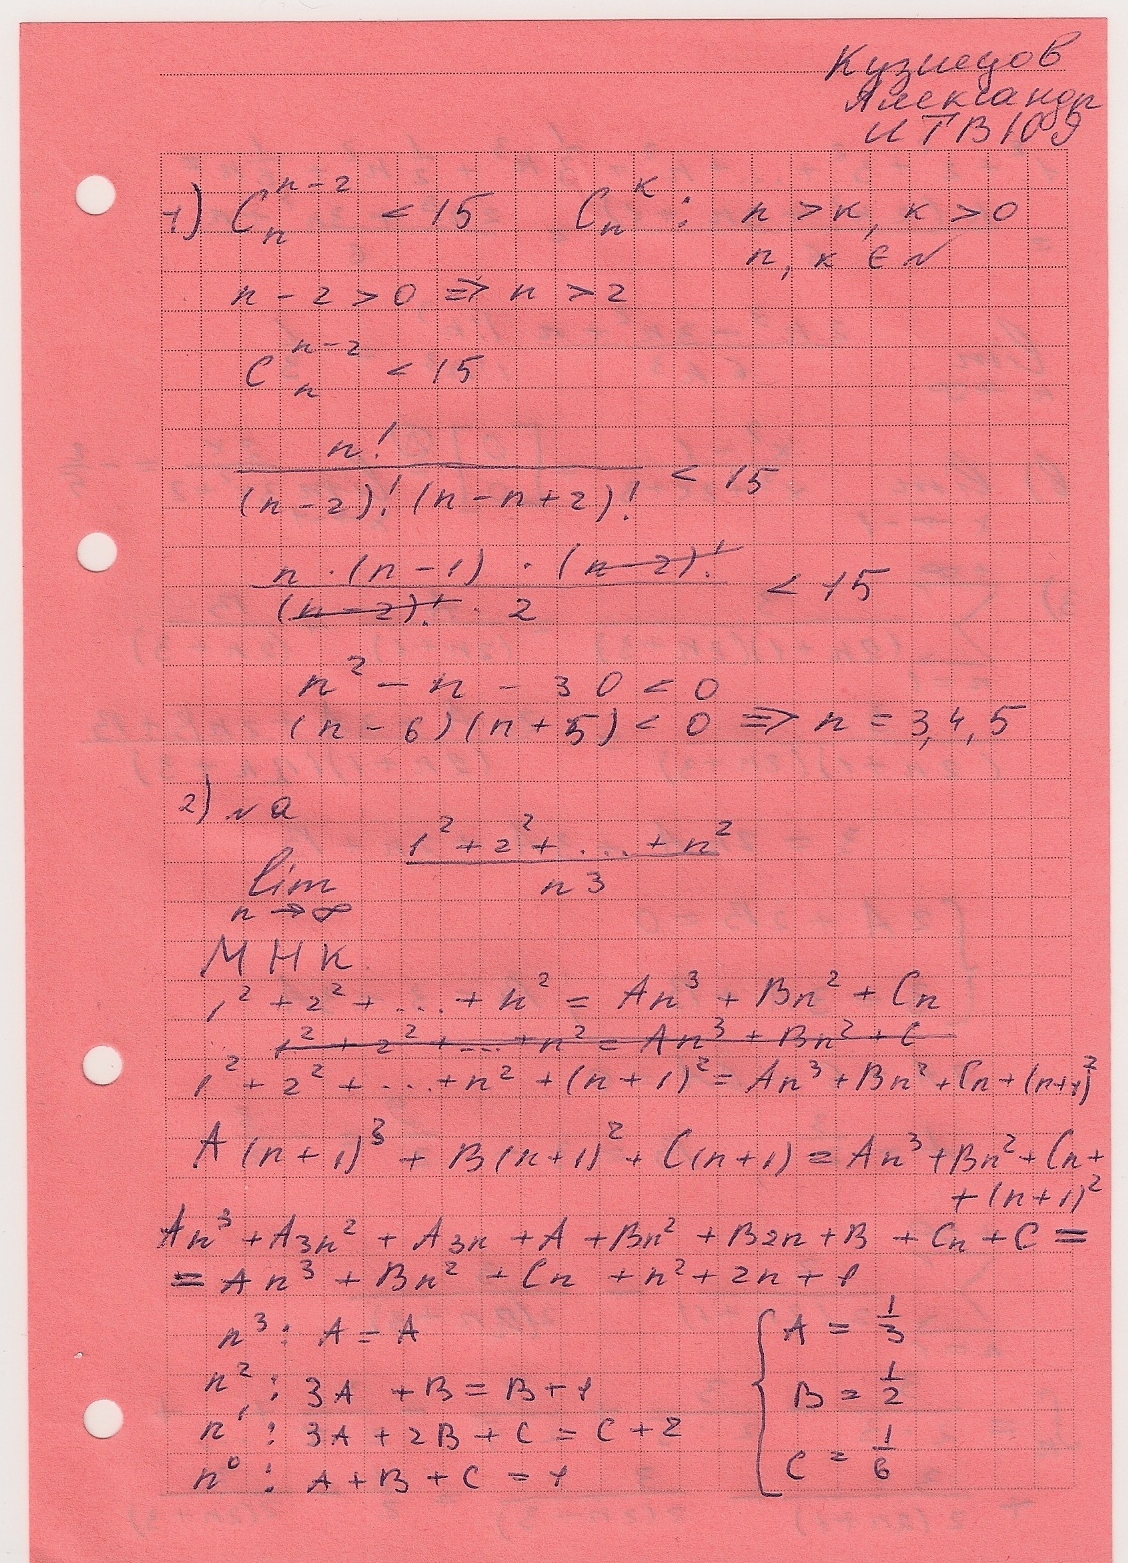 Кузнецов
Александр
ИТВ109
1) C_n^{n-2} < 15 C_n^k : n > k, k > 0
n, k ∈ N
n - 2 > 0 => n > 2
C_n^{n-2} < 15
n! / (n-2)! (n-n+2)! < 15
n · (n-1) · (n-2)! / (n-2)! · 2 < 15
n² - n - 30 < 0
(n-6)(n+5) < 0 => n = 3, 4, 5
2) № a
lim n→∞ (1² + 2² + ... + n²) / n³
МНК
1² + 2² + ... + n² = An³ + Bn² + Cn
1² + 2² + ... + n² = An³ + Bn² + C
1² + 2² + ... + n² + (n+1)² = An³ + Bn² + Cn + (n+1)²
A(n+1)³ + B(n+1)² + C(n+1) = An³ + Bn² + Cn +
+ (n+1)²
An³ + A3n² + A3n + A + Bn² + B2n + B + Cn + C =
= An³ + Bn² + Cn + n² + 2n + 1
n³ : A = A
n² : 3A + B = B + 1
n¹ : 3A + 2B + C = C + 2
n⁰ : A + B + C = 1
{ A = 1/3
B = 1/2
C = 1/6